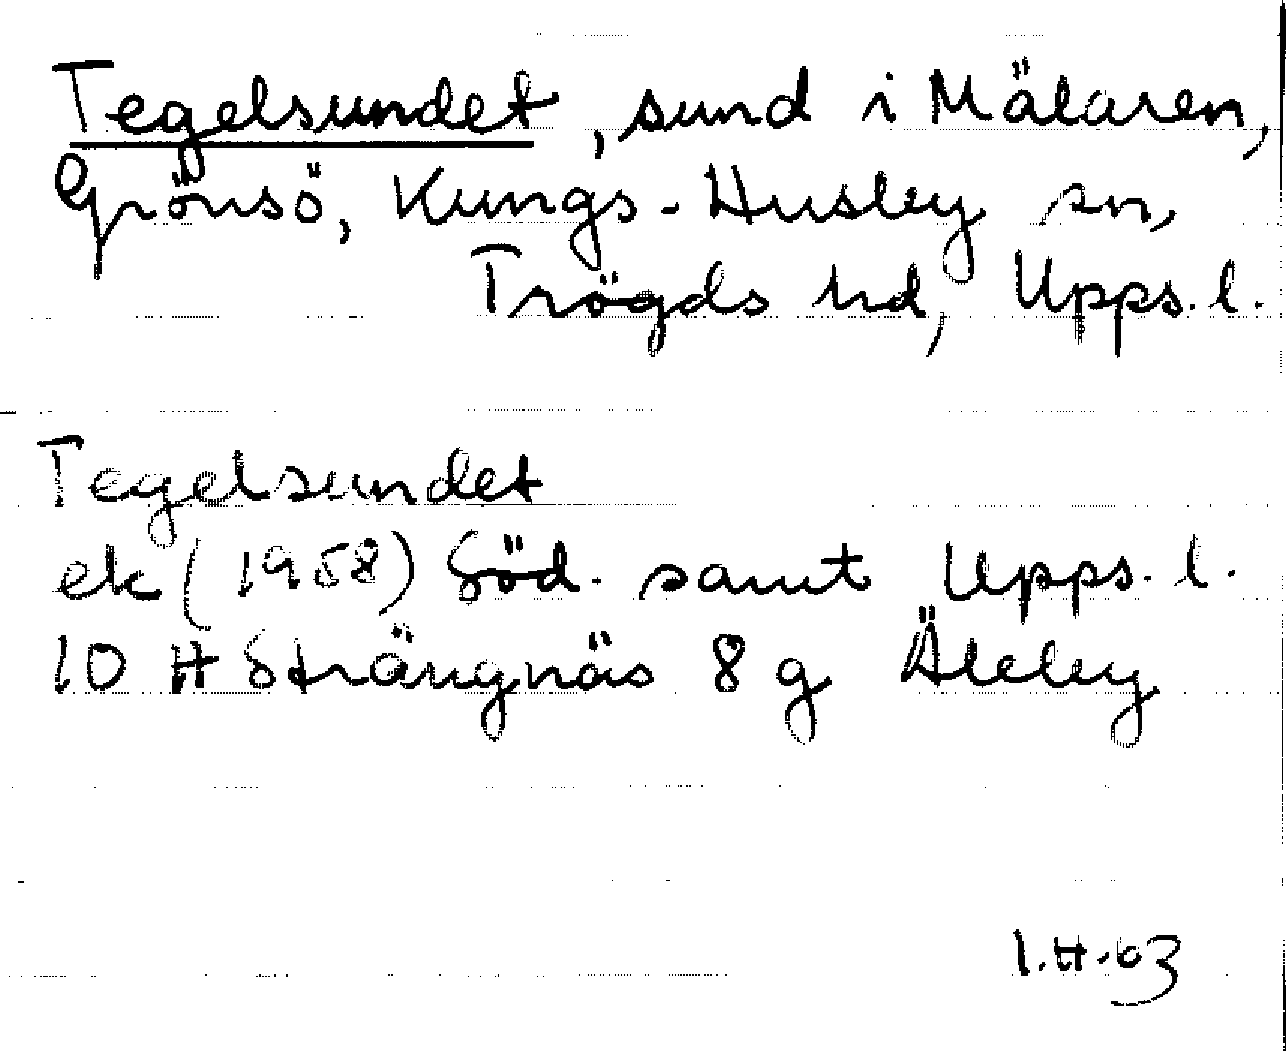 Tegelsundet, sund i Mälaren,
Grönsö, Kungs-Husby sn,
Trögds hd, Upps. l.
Tegelsundet
ek (1958) Söd. samt Upps. l.
10 H Strängnäs 8 g Äleby
I.H.63